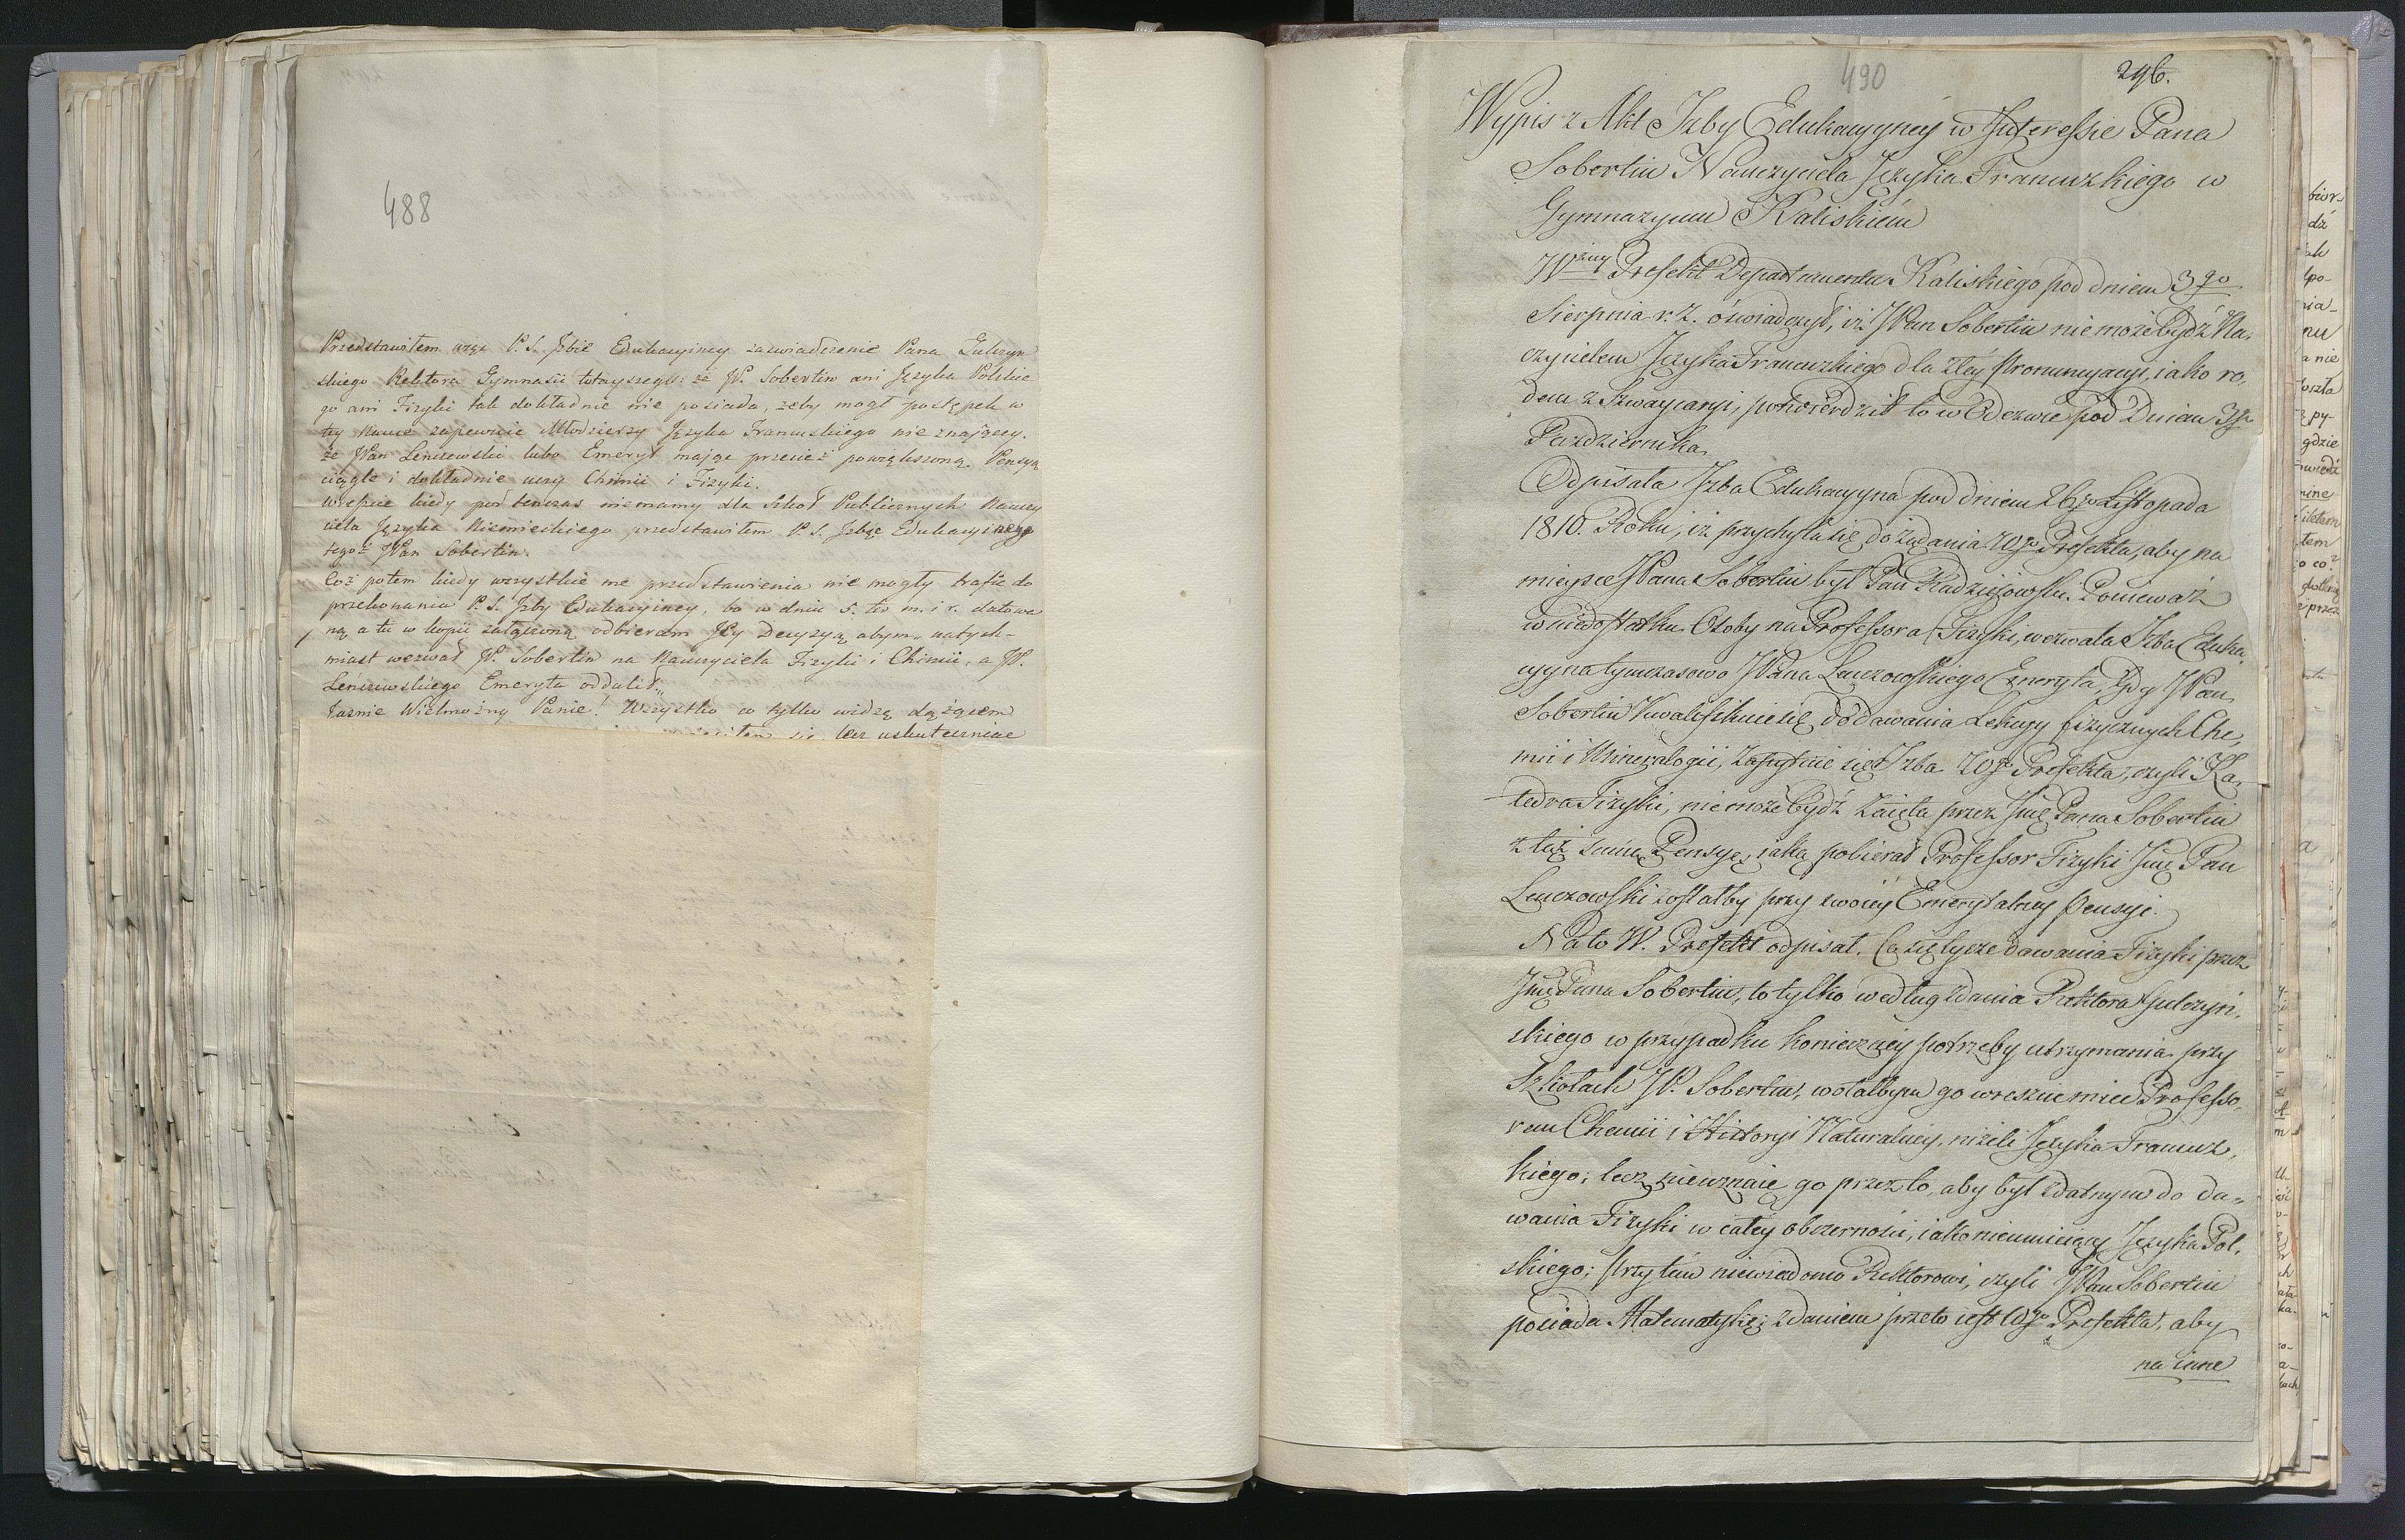 488
Przedstawiłem więc P. S. Jzbie Edukacyiney zaświadczenie Pana Gulczyń
skiego Rektora Gymnasii tutayszego: że JP. Sobertin ani Języka Polskie
go ani Fizyki tak dokładnie nie posiada, żeby mogł postępek w
tey nauce zapewnić Młodzieży Języka Francuskiego nie znającey.
że JPan Lenczewski lubo Emeryt mając przecież powiększoną Pensyą
ciągle i dokładnie uczy Chimii i Fizyki.
wreszcie kiedy podtenczas niemamy dla Szkoł Publicznych Nauczy
ciela Języka Niemieckiego przedstawiłem P. S. Jzbie Edukacyiney
tegoż JPan Sobertin.
Coż potem kiedy wszystkie me przedstawienia nie mogły trafić do
przekonania P. S. Jzby Edukacyiney, bo w dniu 5. tu m. i r. datowa
ną a tu w kopii załączoną odbieram Jey Decyzyą abym „natych-
miast wezwał JP. Sobertin na Nauczyciela Fizyki i Chimii, a JP.
Lenczewskiego Emeryta oddalił„
Jaśnie Wielmożny Panie! Wszystko co tylko widzę dążącem
się, lecz uskutecznione
490
296.
Wypis z Akt Jzby Edukacyyney w Jnteressie Pana
Sobertin Nauczyciela Języka Francuzkiego w
Gymnazyum Kaliskiém
Wżny Prefekt Departamentu Kaliskiego pod dniem 3go
Sierpnia r. z. oświadczył, iż JPan Sobertin nie może bydź Na„
czycielem Języka Francuzkiego dla złey Pronuncyacyi, iako ro„
dem z Szwaycaryi, potwierdził to w Odezwie pod Dniem 3go
Pazdziernika.
Odpisała Jzba Edukacyyna pod dniem 26go Listopada
1810. Roku, iż przychyla się do żądania Wgo Prefekta, aby na
mieysce JPana Sobertin był Pan Radziejowski. Ponieważ
w niedostatku Osoby na Professora Fizyki, wezwała Jzba Eduka„
cyyna tymczasowo JPana Lenczowskiego Emeryta, gdy JPan
Sobertin kwalifikuie się do dawania Lekcyy fizycznych Che„
mii i Mineralogii, zapytuie się Jzba Wgo Prefekta, czyli Ka„
tedra Fizyki, nie może bydź zaięta przez Jmć Pana Sobertin
z tąż samą Pensyą, iaką pobierał Professor Fizyki Jmć Pan
Lenczowski zostałby przy swoiey Emerytalney pensyi.
Na to W. Prefekt odpisał. Co się tycze dawania Fizyki przez
Jmć Pana Sobertin, to tylko według zdania Rektora Gulczyń„
skiego w przypadku konieczney potrzeby utrzymania przy
Szkołach JP. Sobertin, wolałbym go wreszcie mieć Professo„
rem Chemii i Historyi Naturalney, niżeli Języka Francuz„
kiego; lecz nieuznaię go przez to, aby był zdatnym do da„
wania Fizyki w całey obszerności, iako nieumieiący Języka Pol„
skiego; przytém niewiadomo Rektorowi, czyli JPan Sobertin
posiada Matematykę; zdaniem przeto iest Wgo Prefekta, aby
na inne